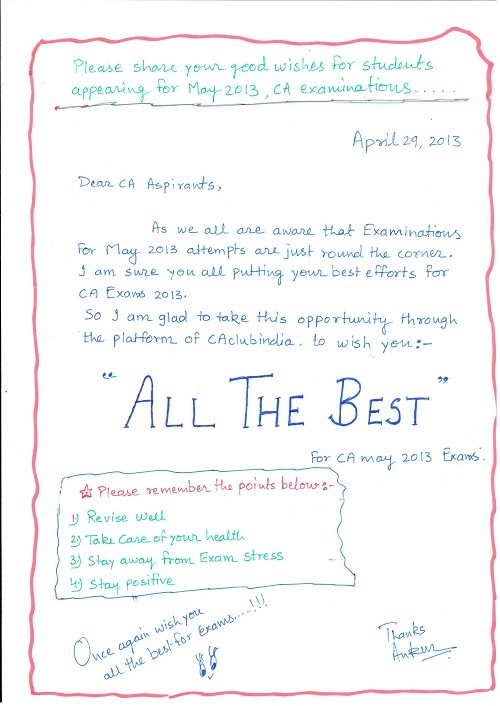 Please share your good wishes for students
appearing for May 2013, CA examinations.....
April 29, 2013
Dear CA Aspirants,
As we all are aware that Examinations
for May 2013 attempts are just round the corner.
I am sure you all putting your best efforts for
CA Exams 2013.
So I am glad to take this opportunity through
the platform of CAclubindia. to wish you:-
"ALL THE BEST"
For CA may 2013 Exams.
☆ Please remember the points below:-
1) Revise well
2) Take Care of your health
3) Stay away from Exam Stress
4) Stay positive
Once again wish you
all the best for exams....!!!
Thanks
Ankur